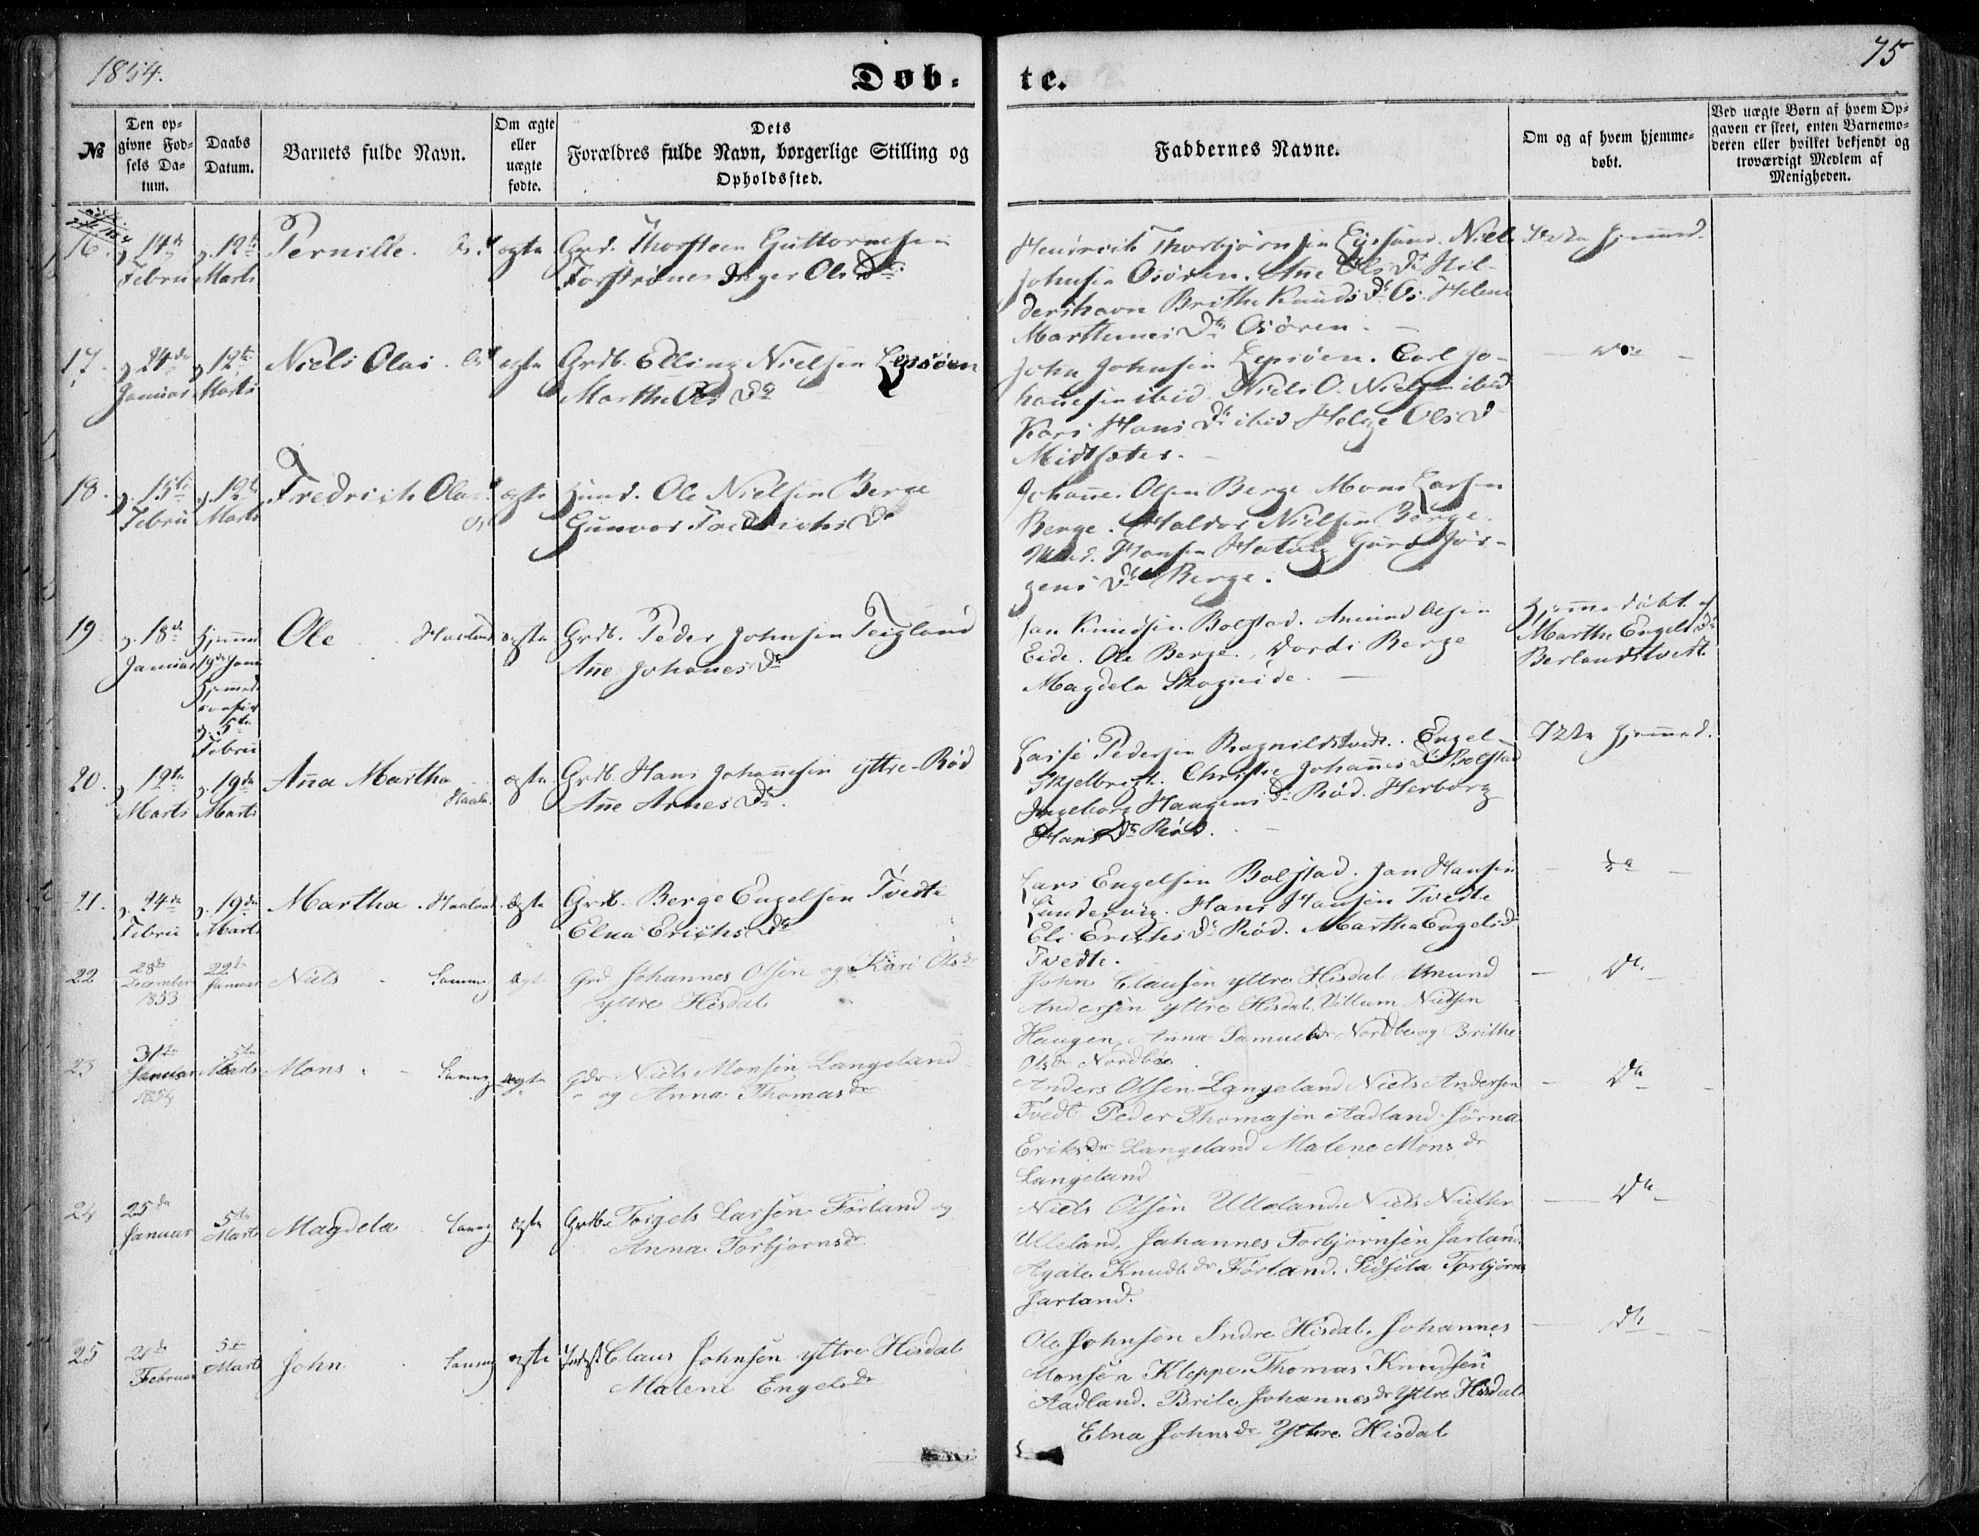 1854.
Døb-
te.
75
№
Den op-
givne Fød-
sels Da-
tum.
Daabs
Datum.
Barnets fulde Navn.
Om ægte
eller
uægte
fødte.
Dets
Forældres fulde Navn, borgerlige Stilling og
Opholdssted.
Faddernes Navne.
Om og af hvem hjemme-
døbt.
Ved uægte Børn af hvem Op-
gaven er skeet, enten Barnemo-
deren eller hvilket bekjendt og
troværdigt Medlem af
Menigheden.
16. 14de Febru 12te Marts Pernille. Os. ægte Grd. Thorsteen Guttormsen
Inger Olsdr.
Hendrich Thorbjørnsen Niels
Johnsen Osøren. Ane Olsdr Hil-
dershavn Brithe Knudsdr Os. Helene
Marthinusdr Osøren.
17. 24de Januar 12te Marts Niels Olai. Os ægte Grdb. Elling Nielsen Lepsøen
Marthe Olsdr
John Johnsen Lepsøen. Carl Jo-
hannesen ibid. Niels O. Nielsen ibid
Kari Hansdr ibid Helge Olsd
Midtsæter.
18. 15de Febru 12te Marts Fredrich Olai. Os ægte Huusd. Ole Nielsen Berge
Gunvor Fredrichsdr
Johanne Olsen Berge Mons Larsen
Berge. Haldor Nielsen Berge.
Hansen Hatvig Guro Jør-
gensdr Berge.
19. 18de Januar Ole Haaland ægte Grdb. Peder Johnsen Teigland
Ane Johanesdr
5te
Febru
Jan Knudsen Bolstad. Amund Olsen
Eide. Ole Berge. Berge
Magdela Skogseide.
Hjemmedøbt af
Marthe Engelsdr
Berlandstvedt.
20. 12te Marts 19de Marts Ana Martha Haaland ægte Grdb. Hans Johannesen yttre Rød
Ane Arnesdr.
Pedersen Ragnildstvedt. Engel
Skjelbreit. Christie Johannesdr Bolstad
Ingeborg Haagensdr Rød. Herborg
Hansdr Rød.
21. 24de Febru 19de Marts Martha. Haaland ægte Grdb. Berge Engelsen Tvedte
Elna Erichsdr
Lars Engelsen Bolstad. Jan Hansen
Lundervig. Hans Hansen Tvedte
Eli Erichsdr Rød. Martha Engelsdr
Tvedte.
22 28de December 1853 22de Januar Niels Samng ægte Grd Johannes Olsen og Kari Olsdr
yttre Hisdal
John Clausen yttre Hisdal Amund
Andersen yttre Hisdal. Villum Nielsen
Haugen, Anna Samuelsdr Nordbø og Brithe
Olsdr Nordbøe
23 31te Januar 1854 5te Marts Mons Samng ægte Gdr Niels Monsen Langeland
og Anna Thomasdr
Anders Olsen Langeland Niels Andersen
Tvedt Peder Thomasen Aadland Sørna
Eriksdr Langeland Malene Monsdr
Langeland
24 25de Januar 5te Marts Magdela Samng ægte Grdb. Torgels Larsen Førland og
Anna Torbjørnsdr
Niels Olsen Ulleland Niels Nielsen
Ulleland, Johannes Torbjørnsen Jarland
Agate Knudsdr Førland. Sidsela Torbjørns
Jarland.
25 21de Februar 5te Marts John Samng ægte Claus Johnsen yttre Hisdal
Malene Engelsdr
Ole Johnsen Indre Hisdal. Johannes
Monsen Kleppe. Thomas Knudsen
Aadland. Brite Johannesdr Yttre Hisdal
Elna Johnsdr Yttre Hisdal